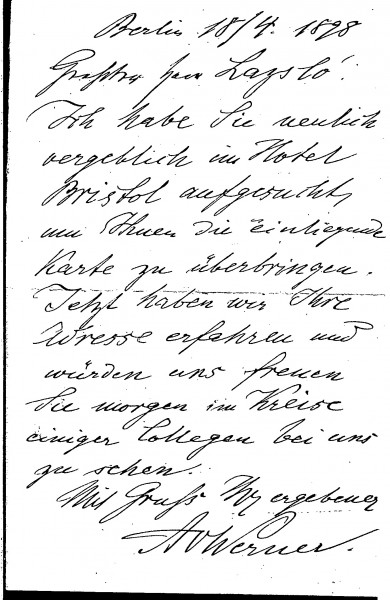 Berlin 18/4. 1898
Geehrter Herr Lazsló!
Ich habe Sie neulich
vergeblich im Hotel
Bristol aufgesucht,
um Ihnen die einliegende
Karte zu überbringen.
Jetzt haben wir Ihre
Adresse erfahren und
würden uns freuen
Sie morgen im Kreise
einiger Collegen bei uns
zu sehen.
Mit Gruss Ihr ergebener
AvWerner.